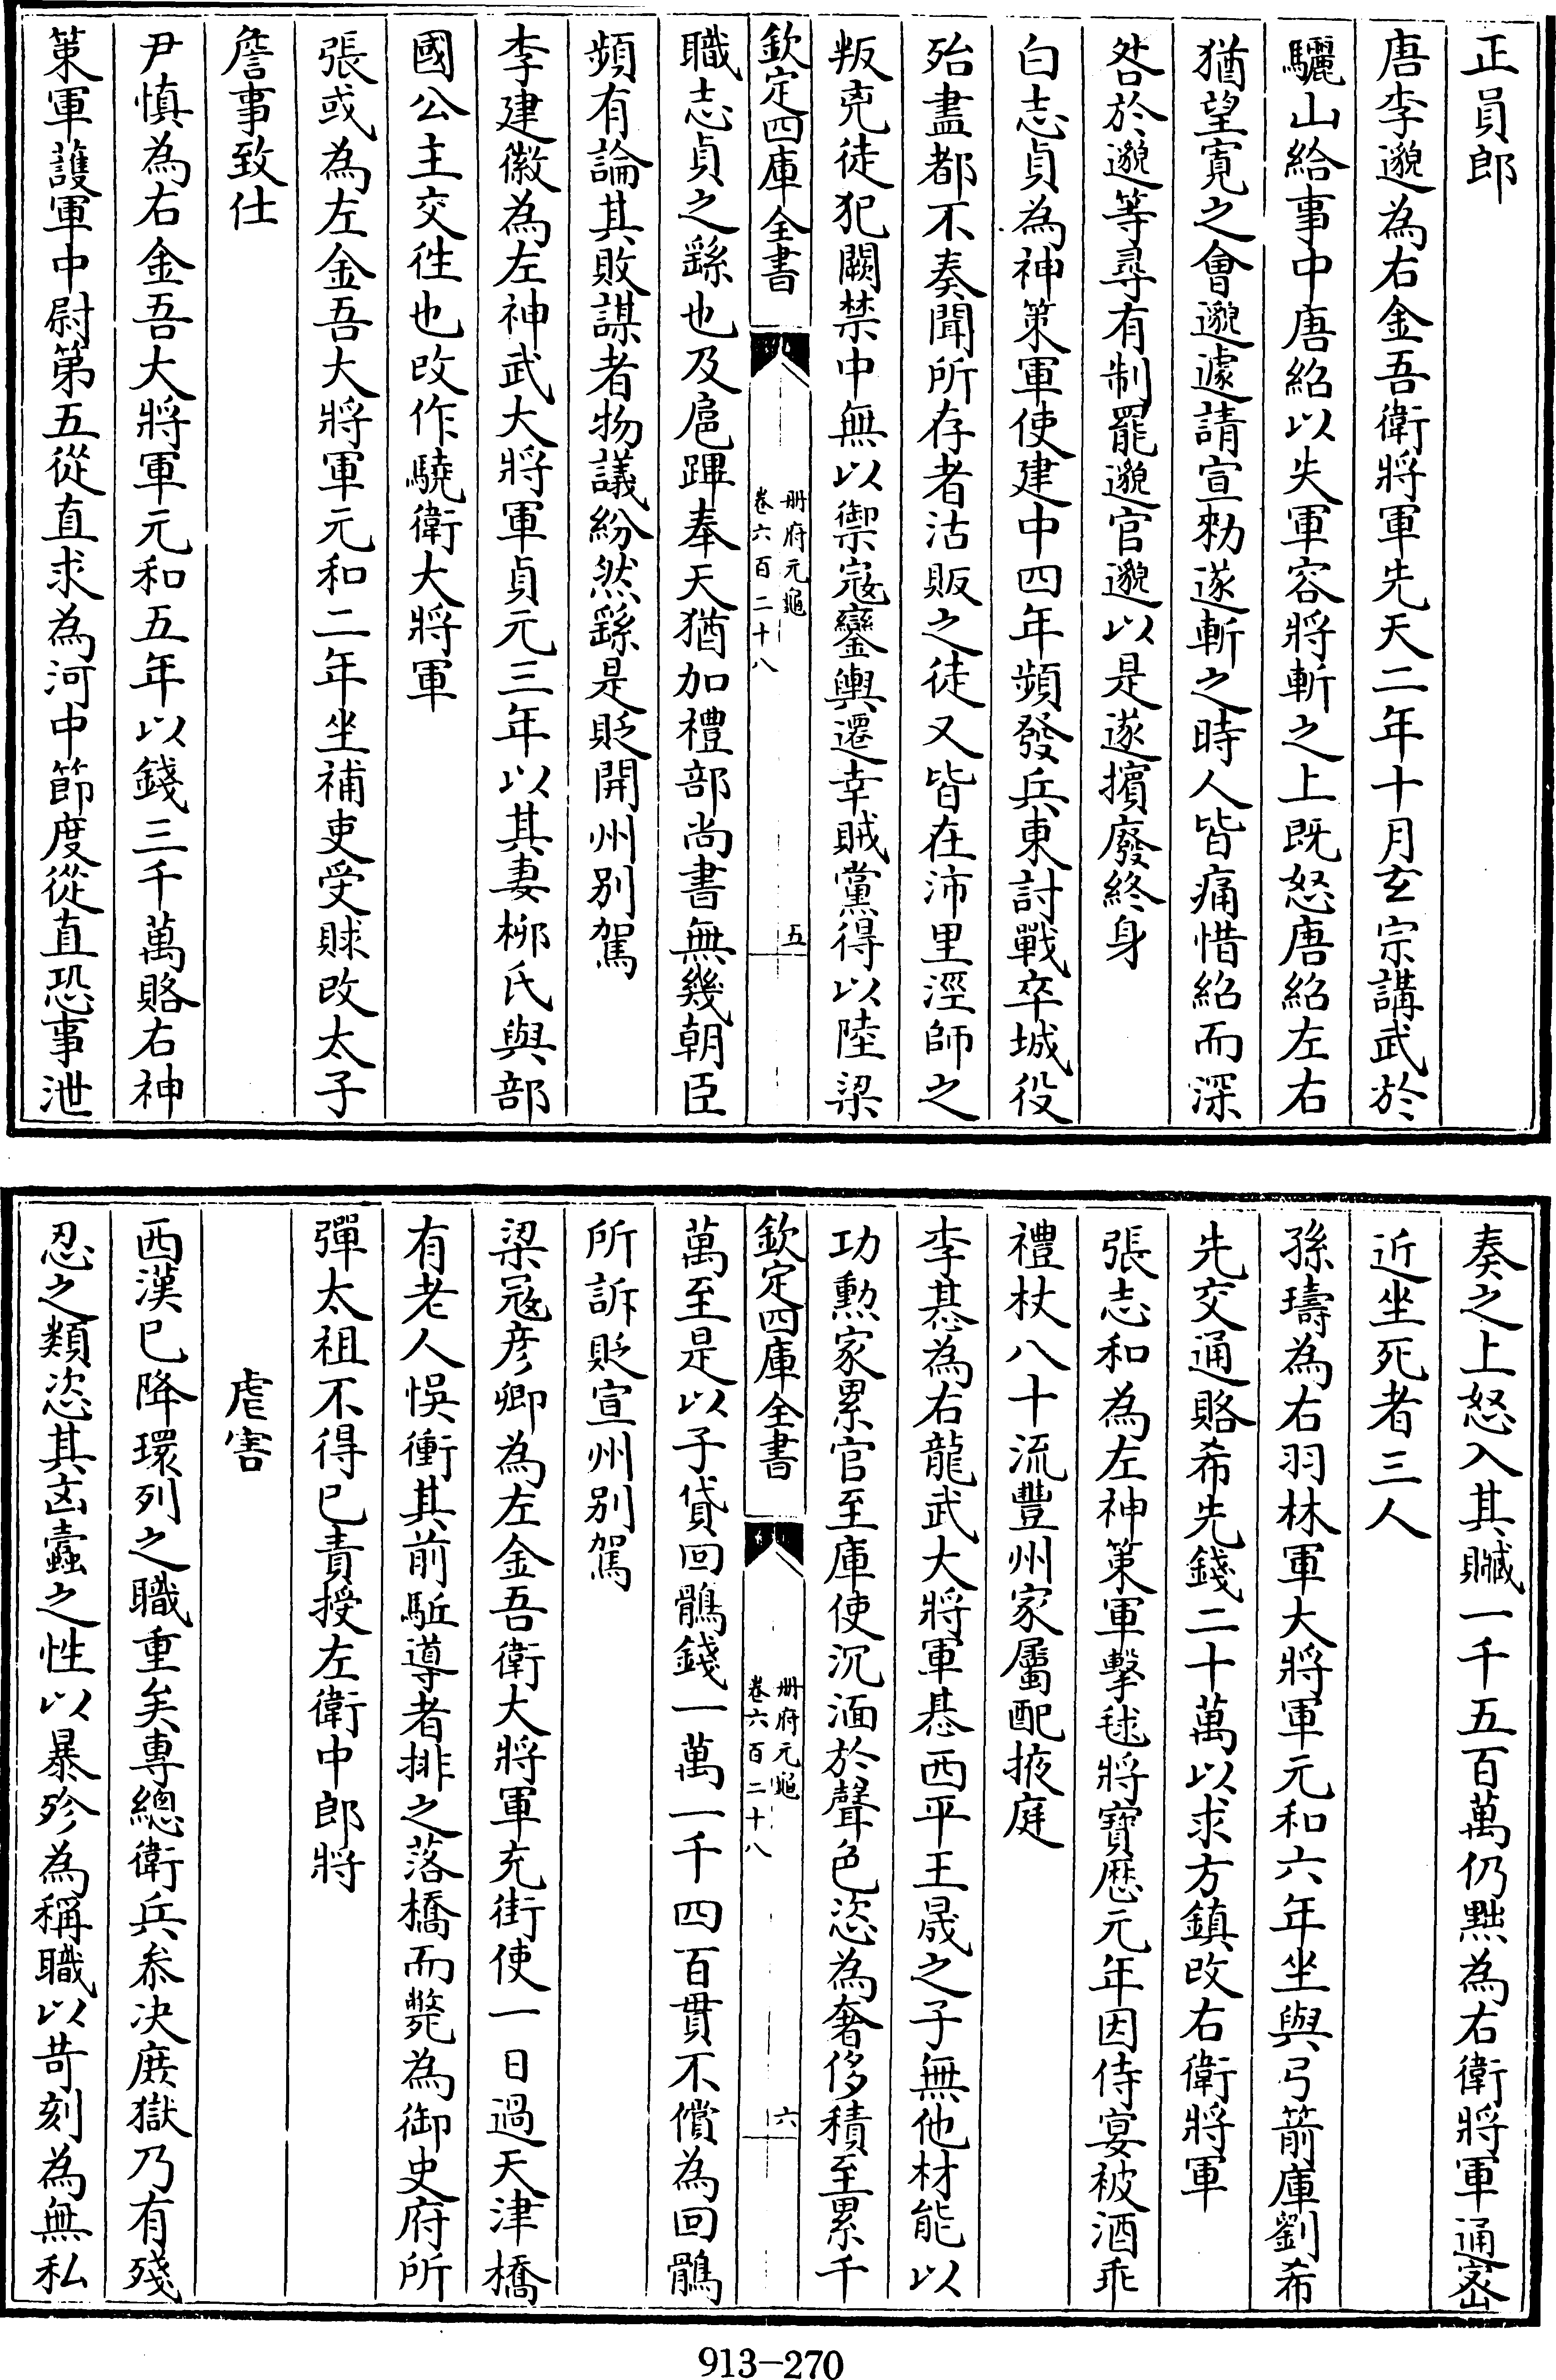 正員郎
唐李邈為右金吾衛將軍先天二年十月𤣥宗講武於
驪山給事中唐紹以失軍容將斬之上既怒唐紹左右
猶望寛之會邈遽請宣勑遂斬之時人皆痛惜紹而深
咎於邈等尋有制罷邈官邈以是遂擯廢終身
白志貞為神策軍使建中四年頻發兵東討戰卒城役
殆盡都不奏聞所存者沽販之徒又皆在沛里涇師之
叛兇徒犯闕禁中無以禦寇鑾輿遷幸賊黨得以陸梁
欽定四庫全書
册府元龜
卷六百二十八
五
職志貞之繇也及扈蹕奉天猶加禮部尚書無幾朝臣
頻有論其敗謀者物議紛然繇是貶開州别駕
李建徽為左神武大將軍貞元三年以其妻栁氏與部
國公主交徃也改作驍衛大將軍
張或為左金吾大將軍元和二年坐補吏受賕改太子
詹事致仕
尹慎為右金吾大將軍元和五年以錢三千萬賂右神
策軍䕶軍中尉第五從直求為河中節度從直恐事泄
奏之上怒入其贓一千五百萬仍黜為右衛將軍通宻
近坐死者三人
孫璹為右羽林軍大將軍元和六年坐與弓箭庫劉希
先交通賂希先錢二十萬以求方鎮改右衛將軍
張志和為左神策軍擊毬將寶厯元年因侍宴被酒乖
禮杖八十流豐州家屬配掖庭
李惎為右龍武大將軍惎西平王晟之子無他材能以
功勲家累官至庫使沉湎於聲色恣為奢侈積至累千
欽定四庫全書
册府元龜
卷六百二十八
六
萬至是以子貸回鶻錢一萬一千四百貫不償為回鶻
所訴貶宣州别駕
梁寇彦卿為左金吾衛大將軍充街使一日過天津橋
有老人悞衝其前駈導者排之落橋而斃為御史府所
彈太祖不得已責授左衛中郎將
虐害
西漢已降環列之職重矣專總衛兵叅决庶獄乃有殘
忍之類恣其凶蠹之性以暴殄為稱職以苛刻為無私
913-270